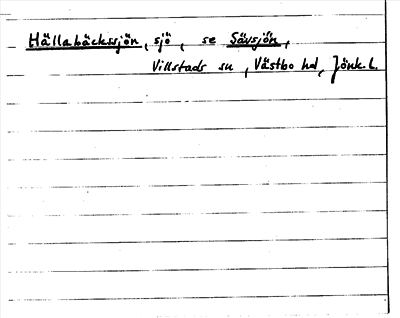 Hällabäckssjön, sjö, se Sävsjön,
Villstads sn, Västbo hd, Jönk. L.